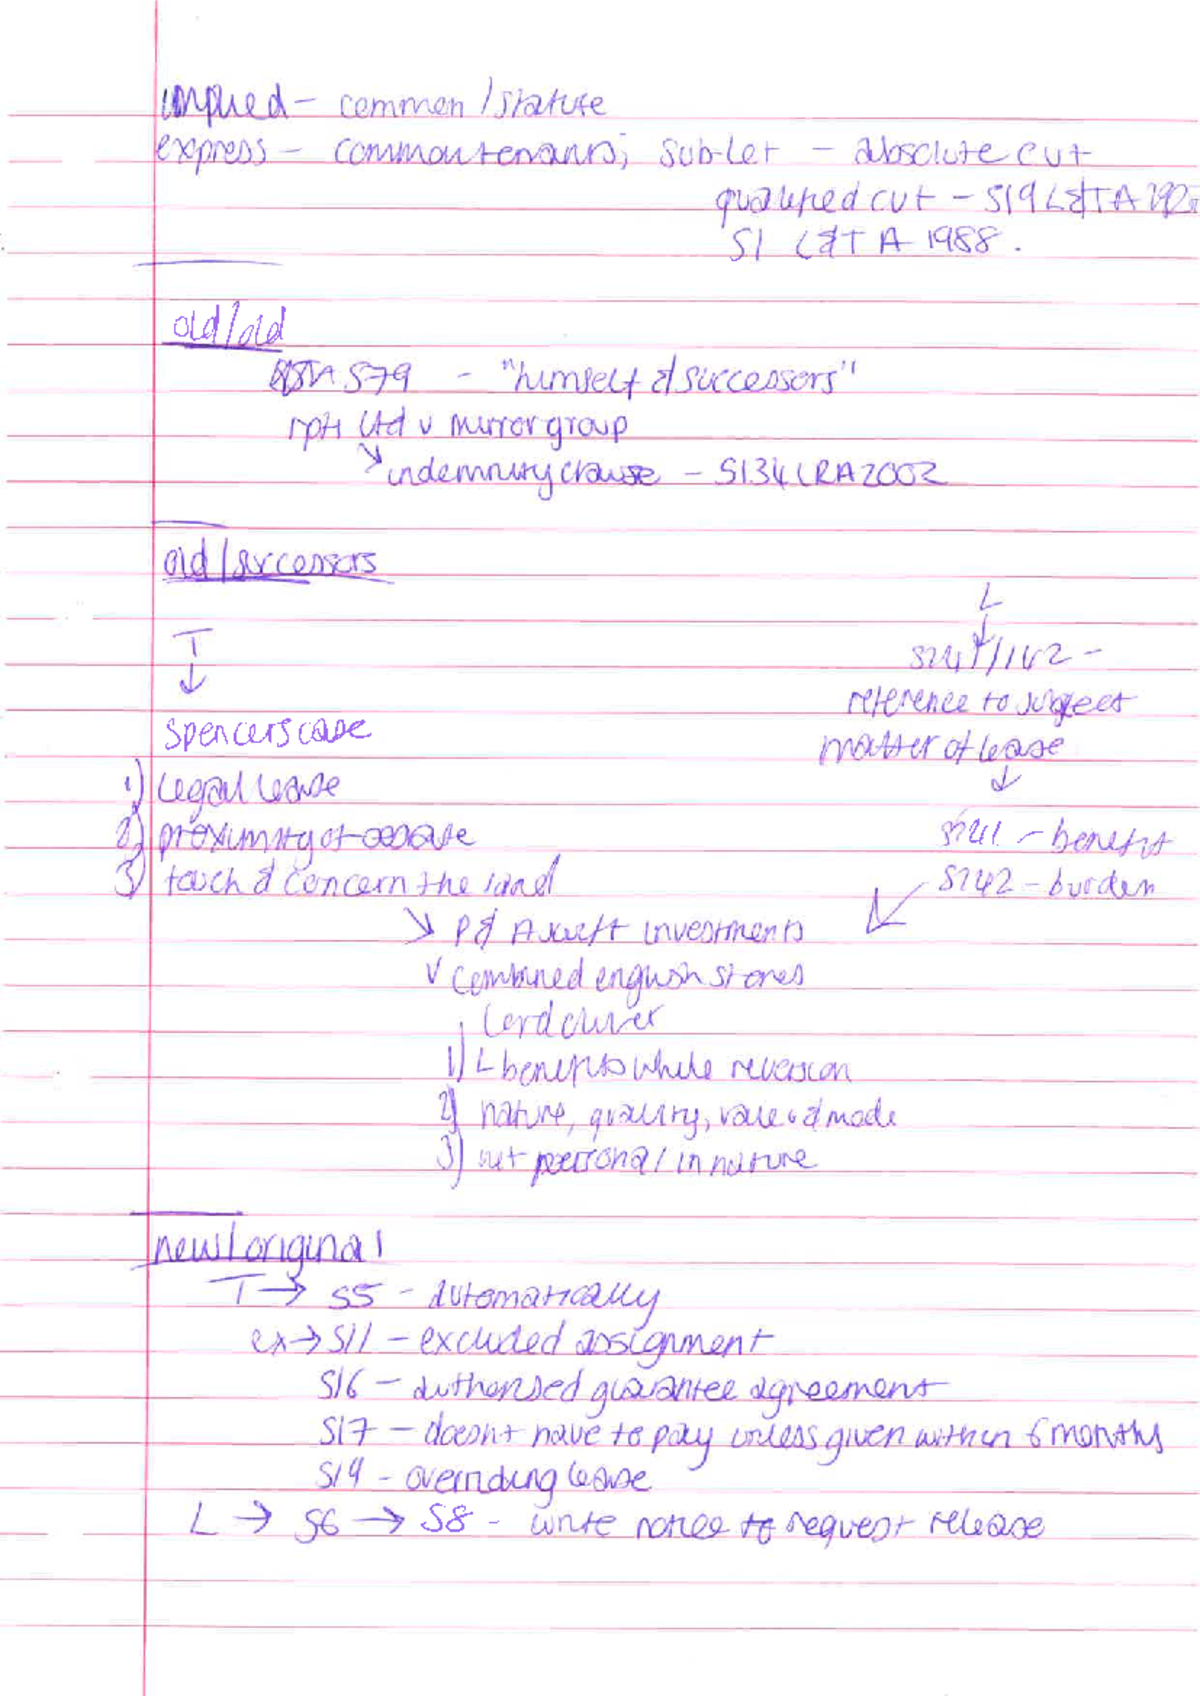 implied - common / statute
express - common tenants; sub-let - absolute cut
qualified cut - S19 L&TA 192
S1 L&TA 1988.
old/old
S79 - "himself & successors"
rph Ltd v mirror group
indemnity clause - S134 LRA 2002
old/successors
T
L
S141/142 -
reference to subject
matter of lease
spencers case
1) legal lease
2) proximity of estate
S141 - benefit
3) touch & concern the land
S142 - burden
P& A swift investments
v combined english stores
Lord oliver
1) L benefits while reversion
2) nature, quality, value & mode
3) not personal in nature
new/original
T → S5 - automatically
ex → S11 - excluded assignment
S16 - authorised guarantee agreement
S17 - doesnt have to pay unless given within 6 months
S19 - overriding lease
L → S6 → S8 - write notice to request release